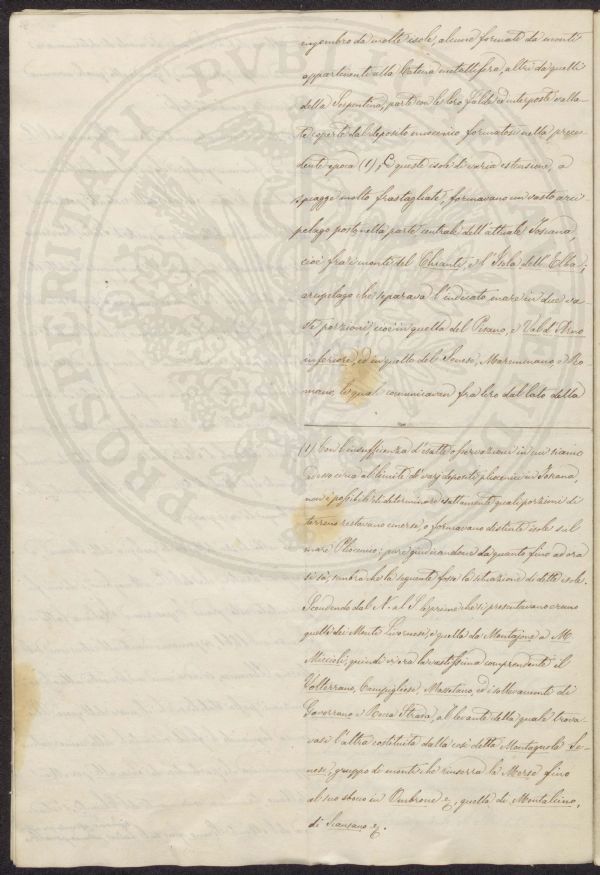 ingombro da molte isole, alcune formate da monti
appartenenti alla Catena metallifera, altri da quelli
della Serpentina, parte con le loro falde ed interposte valla-
te coperte dal deposito miocenico formatosi nella prece-
dente epoca (1); E queste isole di varia estensione, a
spiagge molto frastagliate, formavano un vasto arci-
pelago posto nella parte centrale dell'attuale Toscana,
cioè fra i monti del Chianti, e l'Isola dell'Elba;
arcipelago che separava l'indicato mare in due va-
ste porzioni, cioè in quella del Pisano, e Val d'Arno
inferiore, ed in quella del Senese, Maremmano, e Ro-
mano, le quali comunicavan fra loro dal lato della
(1) Con l'insufficienza d'esatte osservazioni in cui siamo
adesso circa al limite de varj depositi pliocenici in Toscana,
non è possibile di determinare esattamente quali porzioni di
terreno restavano emerse, o formavano distinte isole sul
mare Pliocenico; pure giudicandone da quanto fino ad ora
si sà, sembra che la seguente fosse la situazione di dette isole.
Scendendo dal N. al S. le prime che si presentavano erano
quella dei Monti Livornesi, e quella da Montajone a M.
Miccioli, quindi vi era la vastissima comprendente il
Volterrano, Campigliese, Massetano, ed i sollevamenti di
Gavorrano e Rocca Strada, al levante della quale trova-
vasi l'altra costituita dalla così detta Montagnola Se-
nese, gruppo di monti che rinserra la Merse fino
al suo sbocco in Ombrone &, quella di Montalcino,
di Scansano &.